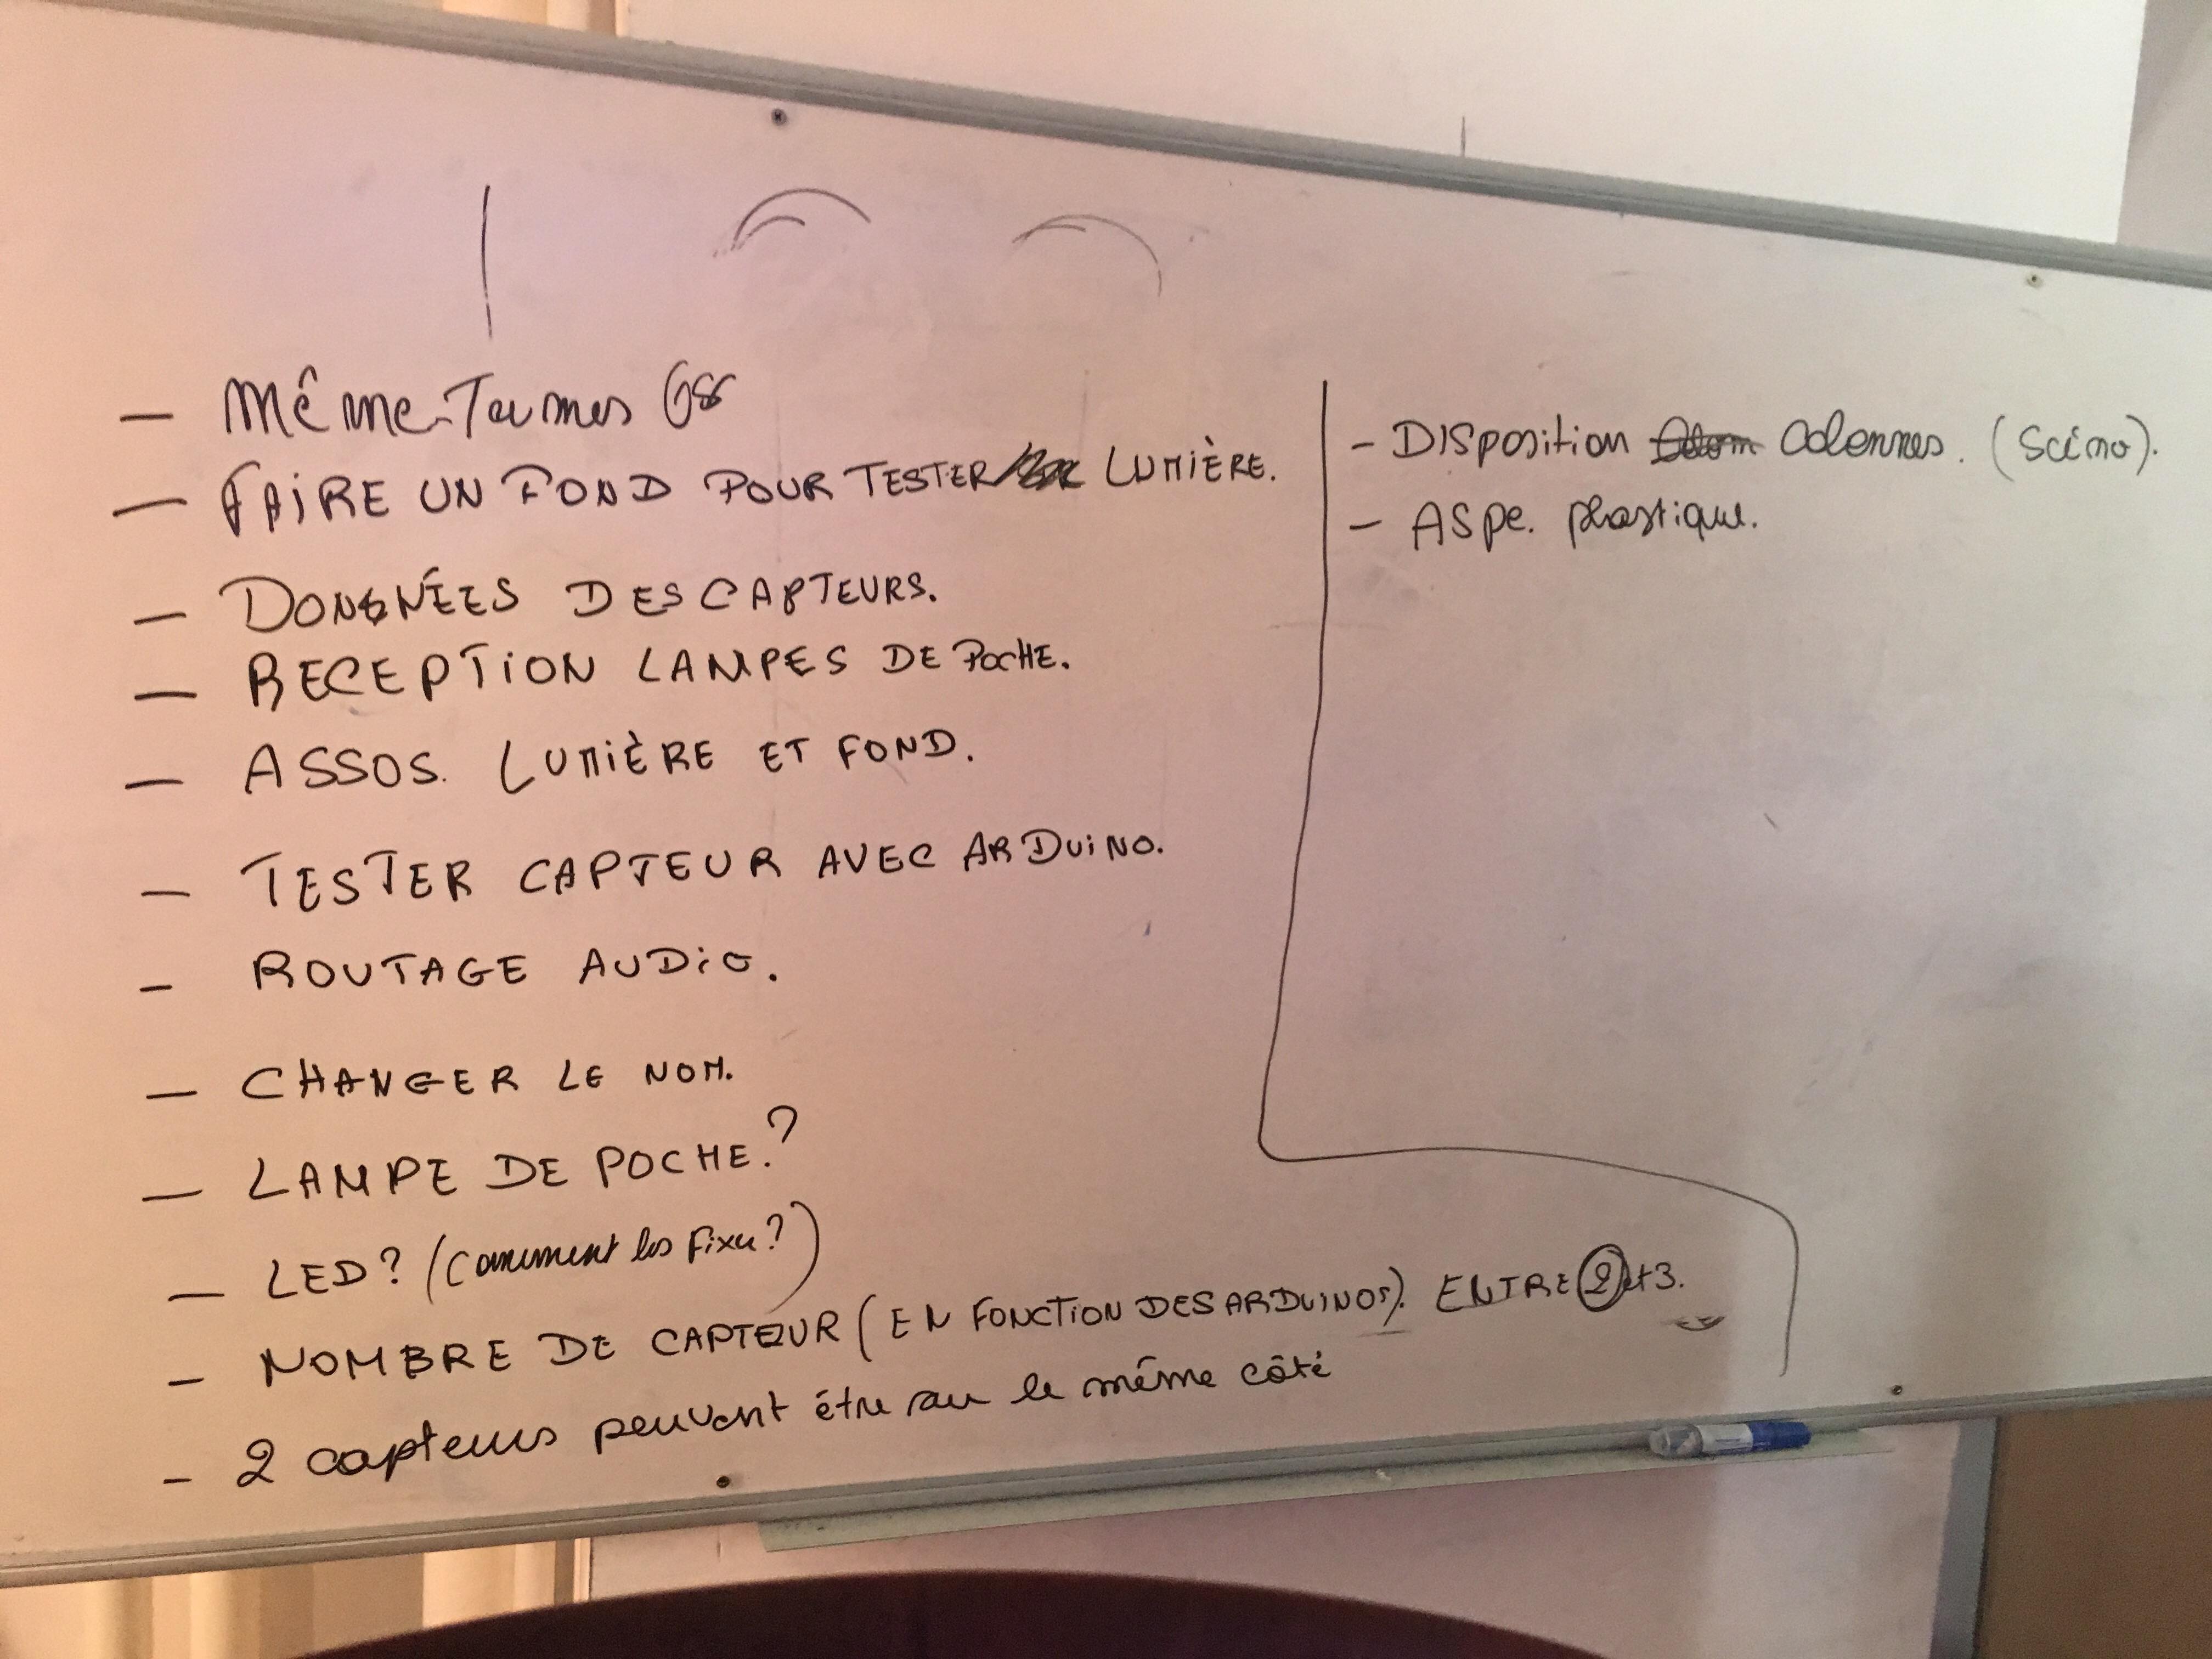 - Même Termes
- FAIRE UN FOND POUR TESTER LUMIÈRE.
- DONNÉES DES CAPTEURS.
- RECEPTION LAMPES DE POCHE.
- ASSOS. LUMIÈRE ET FOND.
- TESTER CAPTEUR AVEC ARDUINO.
- ROUTAGE AUDIO.
- CHANGER LE NOM.
- LAMPE DE POCHE.?
- LED? (Comment les fixer?)
- NOMBRE DE CAPTEUR (EN FONCTION DES ARDUINOS). ENTRE 2 et 3.
- 2 capteurs peuvent être sur le même côté
- DISposition Colonnes. (Scéno).
- ASpe. plastique.